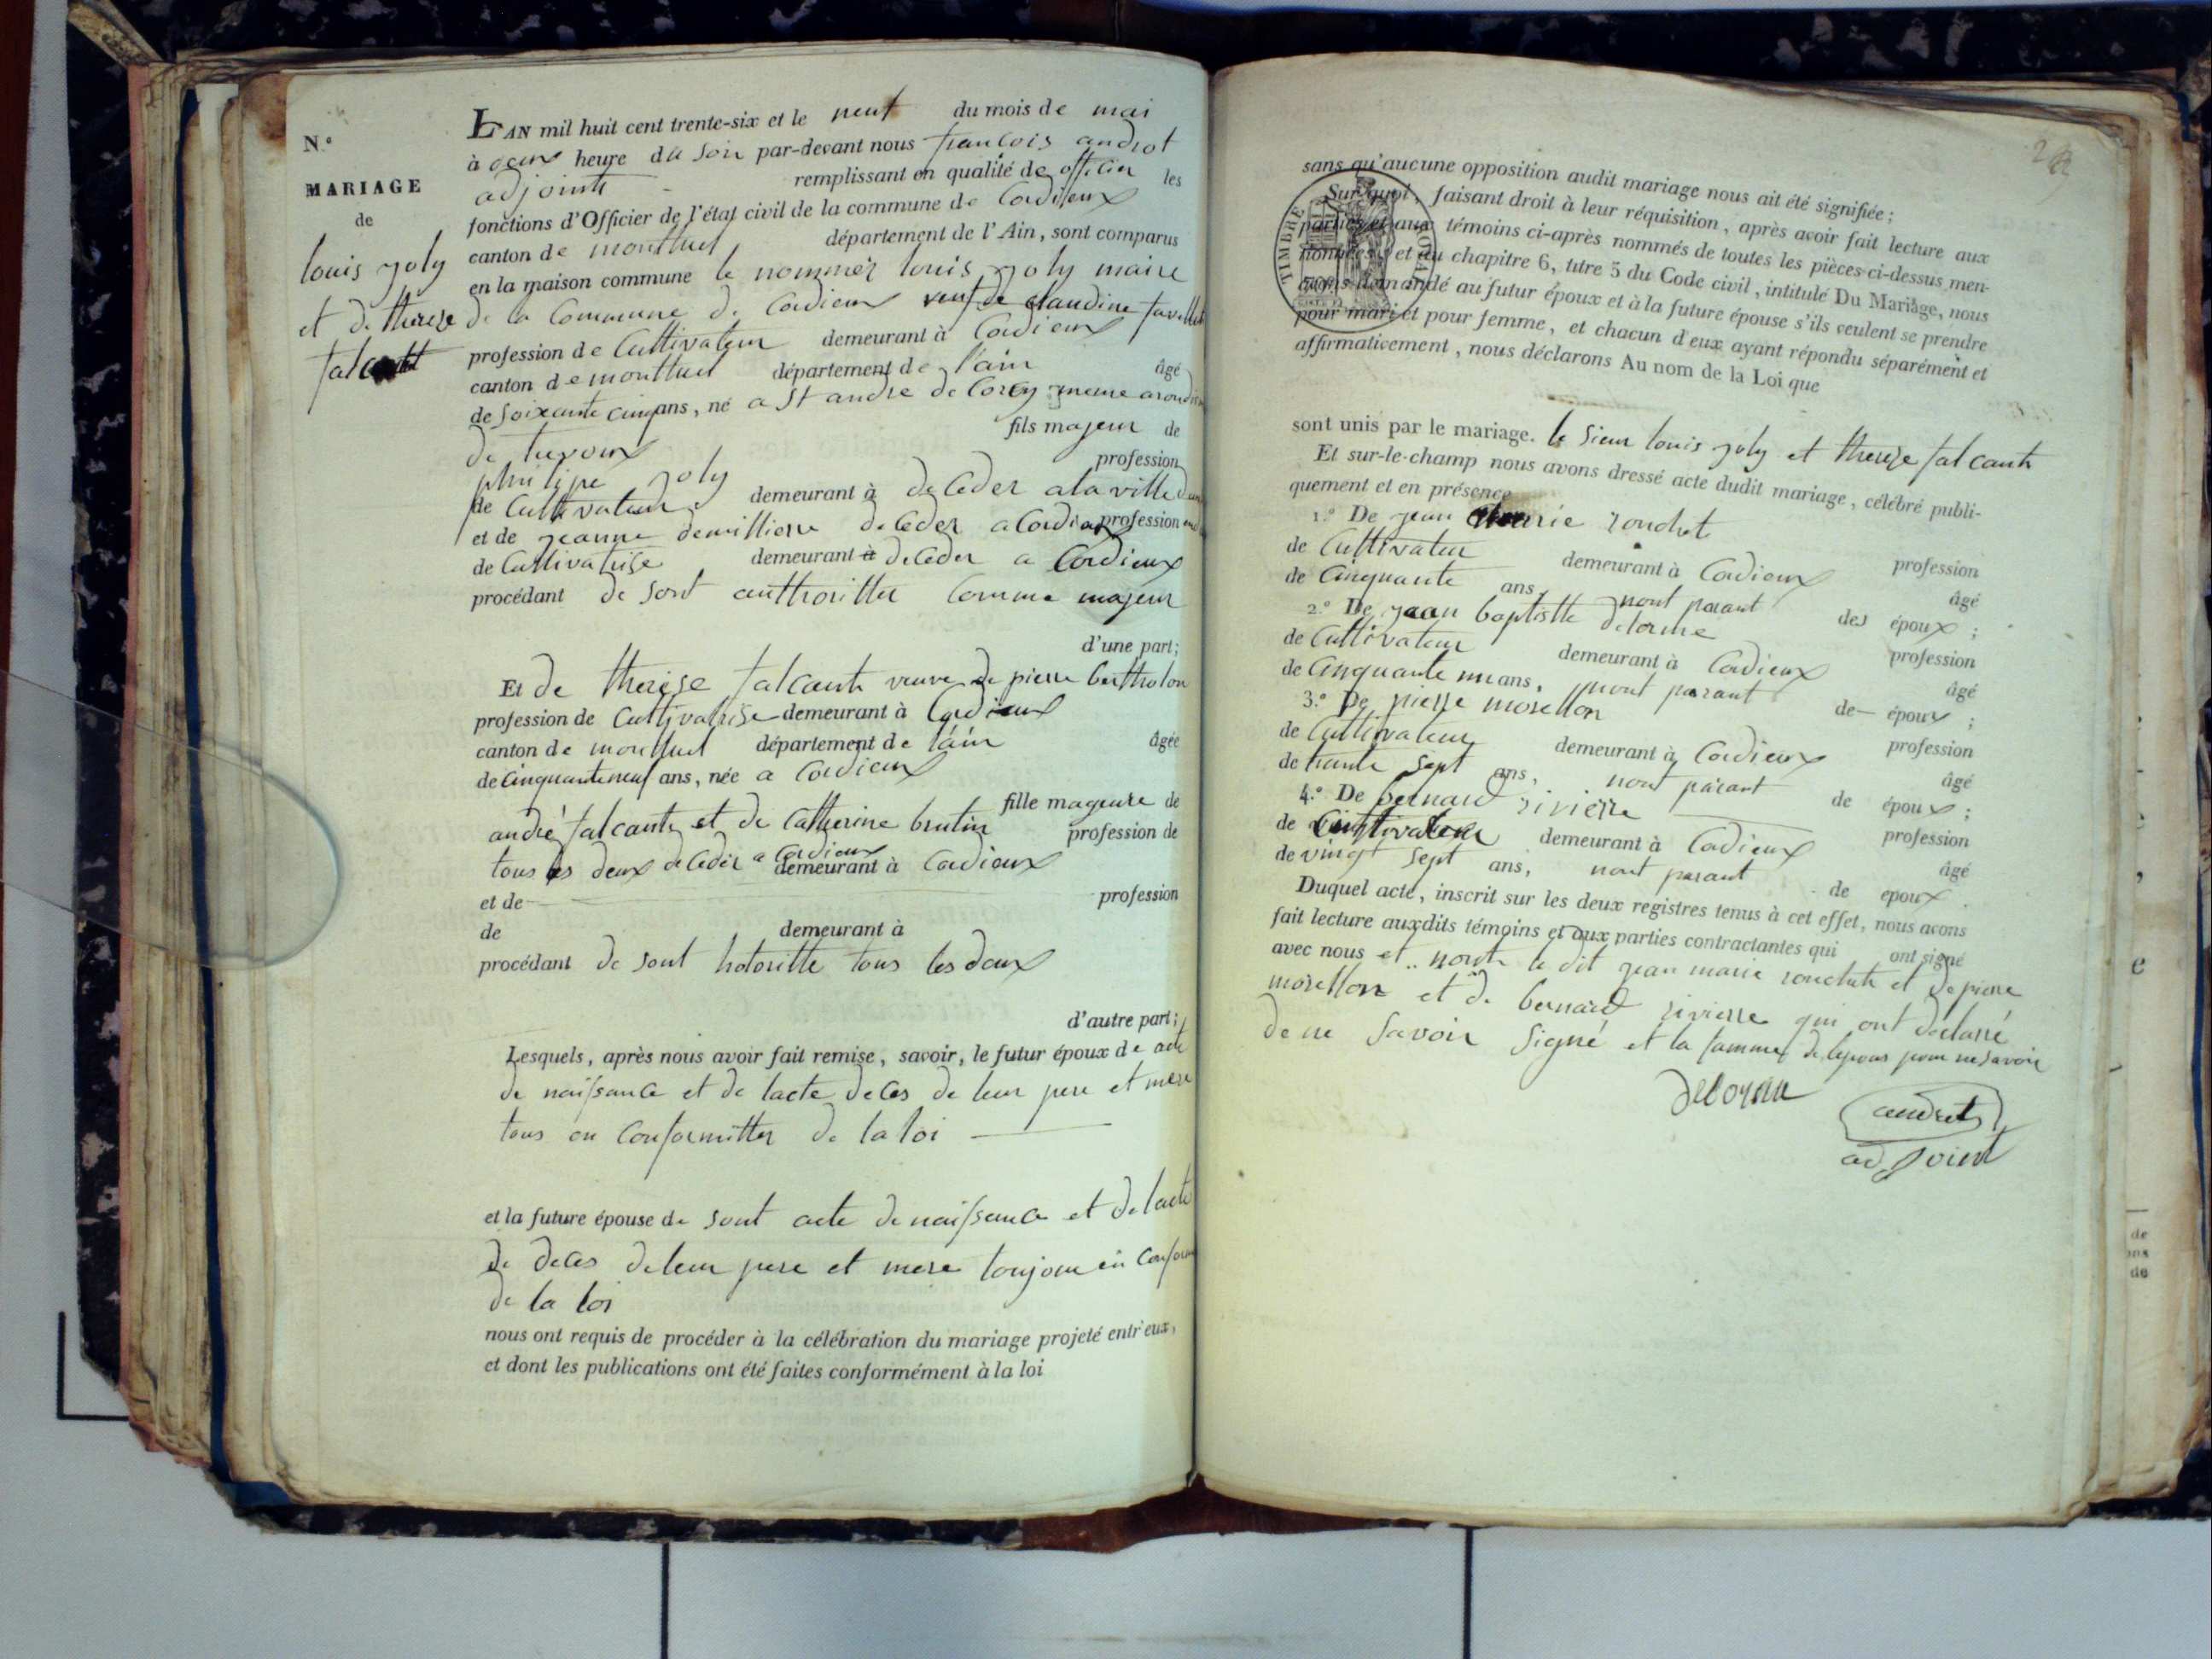 N.°
MARIAGE
de
louis joly
et de therese
falcant
LAN mil huit cent trente-six et le neuf du mois de mai
à deux heure du soir par-devant nous francois androt
adjointe remplissant en qualité de officier les
fonctions d'Officier de l'état civil de la commune de Cordieux
canton de montluel département de l'Ain, sont comparus
en la maison commune le nommér louis joly maire
de la Commune de Cordieux veuf de claudine
profession de Cultivateur demeurant à Cordieux
canton de montluel département de l'ain âgé
de soixante cinq ans, né a St andre de Corcy meme
de trevoux fils majeur de
philipe joly profession
de Cultivateur demeurant à deCeder a la ville
et de jeanne demilliere deCeder a Cordieux profession
de Cultivatrise demeurant à deCeder a Cordieux
procédant de sont authoritter Comme majeur
d'une part;
Et de therese falcant veuve de pierre bertholon
profession de Cultivatrise demeurant à Cordieux
canton de montluel département de l'ain âgée
de Cinquante neuf ans, née a Cordieux
fille mageure de
andré falcant et de Catherine brutin profession de
tous les deux deCeder a Cordieux demeurant à Cordieux
et de profession
de demeurant à
procédant de sont hotoritte tous les deux
d'autre part;
Lesquels, après nous avoir fait remise, savoir, le futur époux de acte
de naissance et de lacte deCes de leur pere et mere
tous en Conformitter de la loi
et la future épouse de sont acte de naissance et de lacte
de deCes de leur pere et mere toujour en
de la loi
nous ont requis de procéder à la célébration du mariage projeté entr'eux,
et dont les publications ont été faites conformément à la loi
sans qu'aucune opposition audit mariage nous ait été signifiée;
Sur quoi, faisant droit à leur réquisition, après avoir fait lecture aux
parties et aux témoins ci-après nommés de toutes les pièces ci-dessus men-
tionnées, et du chapitre 6, titre 5 du Code civil, intitulé Du Mariage, nous
avons demandé au futur époux et à la future épouse s'ils veulent se prendre
pour mari et pour femme, et chacun d'eux ayant répondu séparément et
affirmativement, nous déclarons Au nom de la Loi que
TIMBRE ROYAL
sont unis par le mariage. le sieur louis joly et therese falcant
Et sur-le-champ nous avons dressé acte dudit mariage, célébré publi-
quement et en présence
1.° De jean marie ronchet profession
de Cultivateur demeurant à Cordieux âgé
de Cinquante ans, nont parant des époux;
2.° De jean baptiste delorme profession
de Cultivateur demeurant à Cordieux âgé
de Cinquante un ans, nont parant de époux;
3.° De pierre morellon profession
de Cultivateur demeurant à Cordieux âgé
de trante sept ans, nont parant de époux;
4.° De bernard rivierre profession
de Cultivateur demeurant à Cordieux âgé
de vingt sept ans, nont parant de époux.
Duquel acte, inscrit sur les deux registres tenus à cet effet, nous avons
fait lecture auxdits témoins et aux parties contractantes qui ont signé
avec nous et nont le dit jean marie ronchet et de pierre
morellon et de bernard rivierre qui ont déclarré
de ne savoir signé et la famme de lepoux pour ne savoir
delorme
androt
adjoint